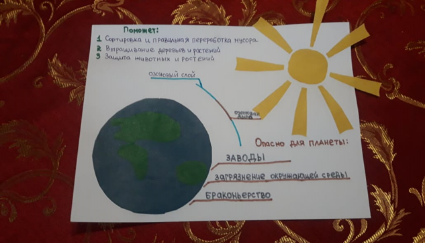 Поможет:
1 Сортировка и правильная переработка мусора
2 Выращивание деревьев и растений
3 Защита животных и растений
озоновый слой
Опасно для планеты:
ЗАВОДЫ
ЗАГРЯЗНЕНИЕ ОКРУЖАЮЩЕЙ СРЕДЫ
БРАКОНЬЕРСТВО